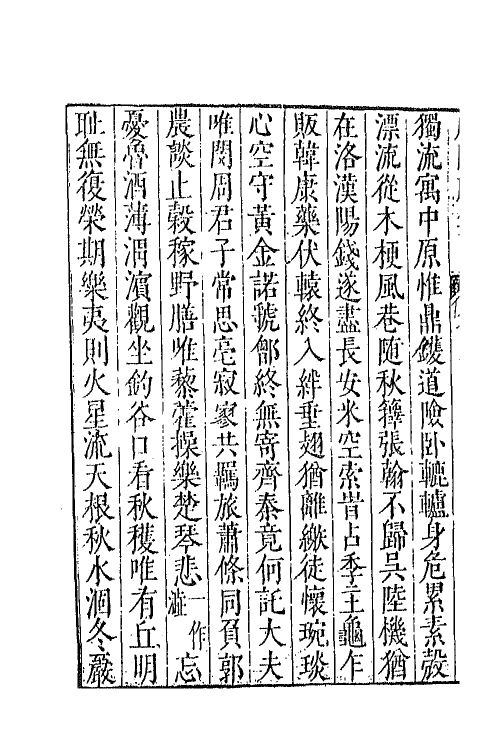 獨流寓中原惟鼎鑊道險卧轆轤身危累素殼
漂流從木梗風卷隨秋籜張翰不歸吳陸機猶
在洛漢陽錢遂盡長安米空索昔占季主龜乍
販韓康藥伏轅終入絆垂翅猶離繳徒懷琬琰
心空守黃金諾虢鄶終無寄齊秦竟何託大夫
唯閔周君子常思亳寂寥共羈旅蕭條同負郭
農談止榖稼野膳唯藜藿操樂楚琴悲一作澁忘
憂魯酒薄渭濱觀坐釣谷口看秋穫唯有丘明
耻無復榮期樂夷則火星流天根秋水涸冬嚴